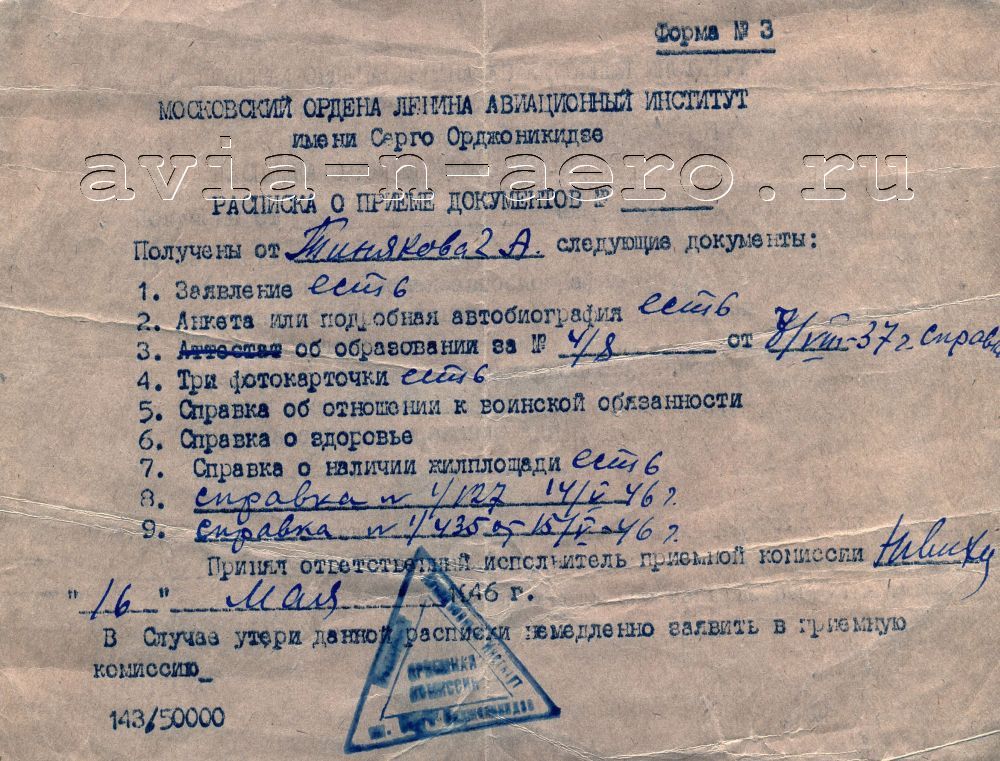 Форма № 3
МОСКОВСКИЙ ОРДЕНА ЛЕНИНА АВИАЦИОННЫЙ ИНСТИТУТ
имени Серго Орджоникидзе
avia-n-aero.ru
РАСПИСКА О ПРИЕМЕ ДОКУМЕНТОВ №
Получены от Тинякова Г А. следующие документы:
1. Заявление есть
2. Анкета или подробная автобиография есть
3. Аттестат об образовании за № 4/8 от 8/VIII-37 г справка
4. Три фотокарточки есть
5. Справка об отношении к воинской обязанности
6. Справка о здоровье
7. Справка о наличии жилплощади есть
8. справка № 1/127 14/V 46 г.
9. справка № 1/435 от 15/V-46 г.
Принял ответственный исполнитель приемной комиссии
"16" Мая 1946 г.
В Случае утери данной расписки немедленно заявить в приемную
комиссию
ПРИЕМНАЯ
КОМИССИЯ
им. Серго Орджоникидзе
143/50000